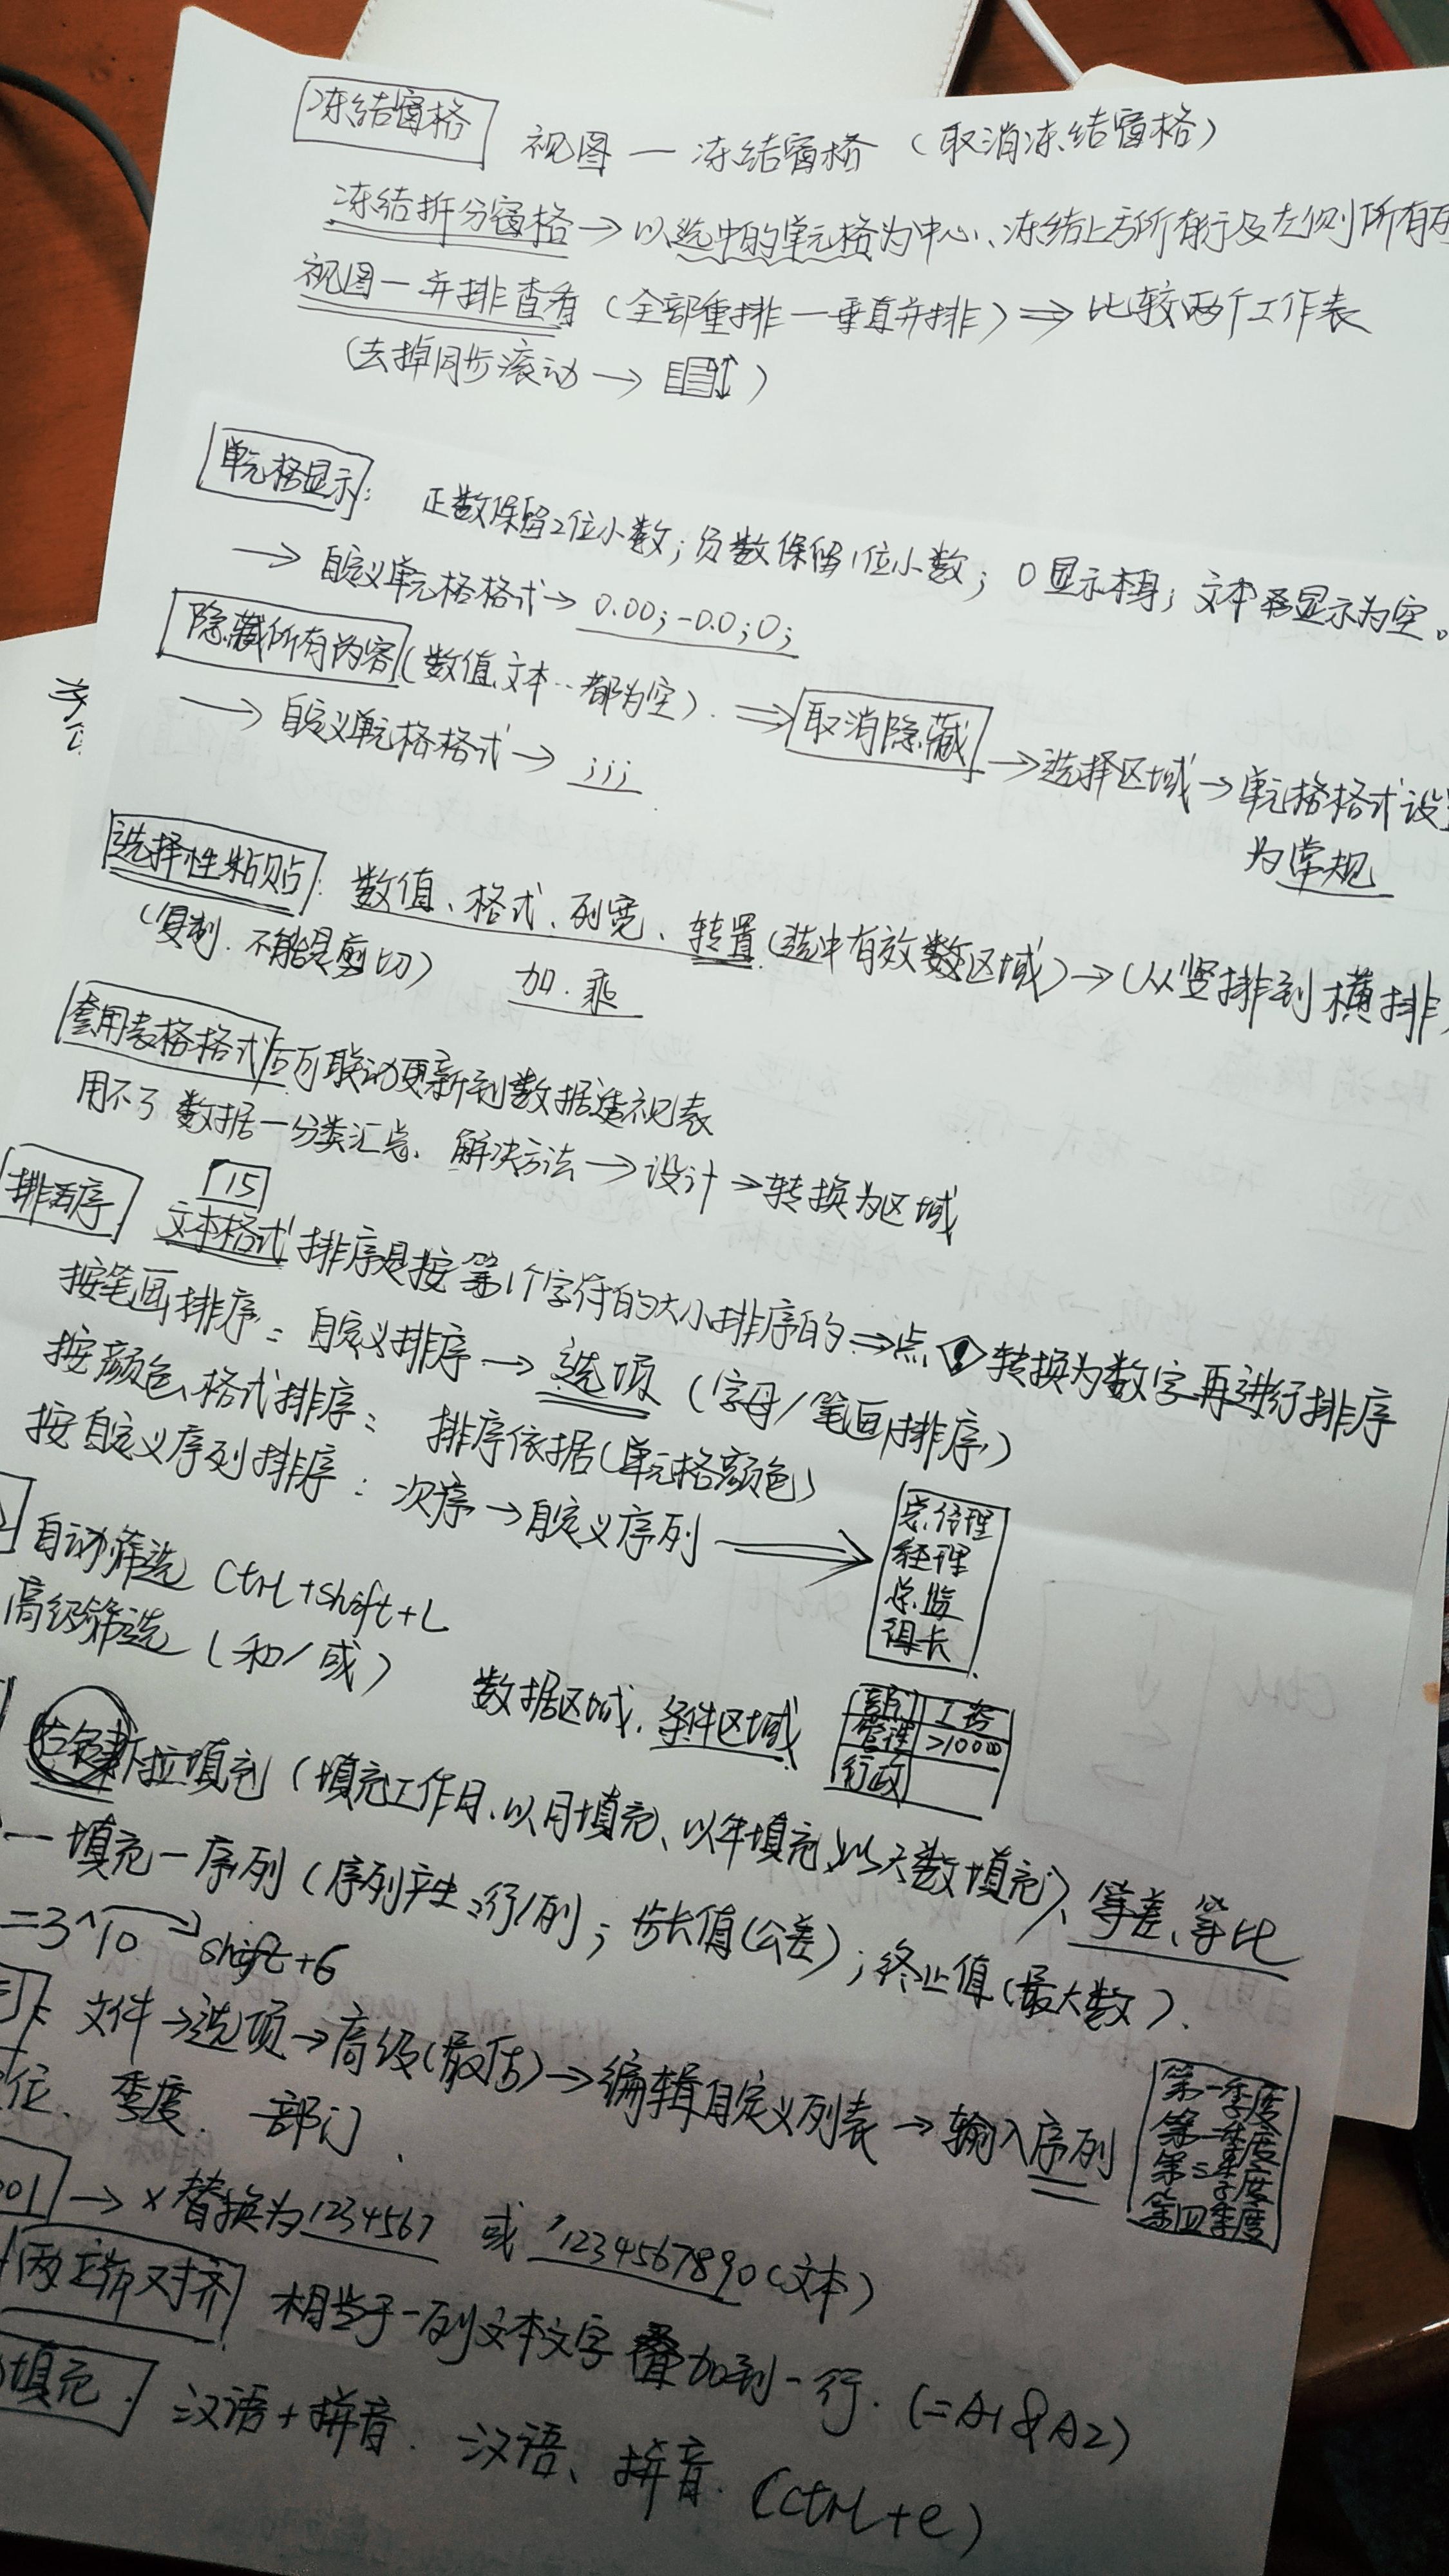 冻结窗格 视图一冻结窗格（取消冻结窗格）
冻结拆分窗格→以选中的单元格为中心、冻结上方所有行及左侧所有
视图一并排查看（全部重排一垂直并排）⇒比较两个工作表
（去掉同步滚动→ ）
单元格显示： 正数保留2位小数；负数保留1位小数；0显示本身；文本显示为空。
→自定义单元格格式→0.00;-0.0;0;
隐藏所有内容（数值、文本…都为空）. ⇒取消隐藏→选择区域→单元格格式设
→自定义单元格格式→;;;
为常规
选择性粘贴：数值、格式、列宽、转置（选中有效数区域）→（从竖排到横排
（复制.不能是剪切） 加.乘
套用表格格式后可联动更新到数据透视表
用不了数据一分类汇总. 解决方法→设计→转换为区域
排序 15
文本格式排序是按第1个字符的大小排序的⇒点!转换为数字再进行排序
按笔画排序：自定义排序→选项（字母/笔画排序）
按颜色、格式排序： 排序依据（单元格颜色）
按自定义序列排序：次序→自定义序列→
总经理
经理
总监
组长
自动筛选 Ctrl+shift+L
高级筛选（和/或） 数据区域. 条件区域
部门 工资
管理 >10000
行政
拉填充（填充工作日、以月填充、以年填充、以天数填充）、等差、等比
一填充一序列（序列产生：行/列；步长值（公差）；终止值（最大数）.
=3^10 shift+6
文件→选项→高级（最后）→编辑自定义列表→输入序列
第一季度
第二季度
第三季度
第四季度
位、季度. 部门.
001→×替换为1234567 或 '1234567890（文本）
两端对齐 相当于一列文本文字叠加到一行.（=A1&A2）
填充. 汉语+拼音. 汉语、拼音.（Ctrl+e）